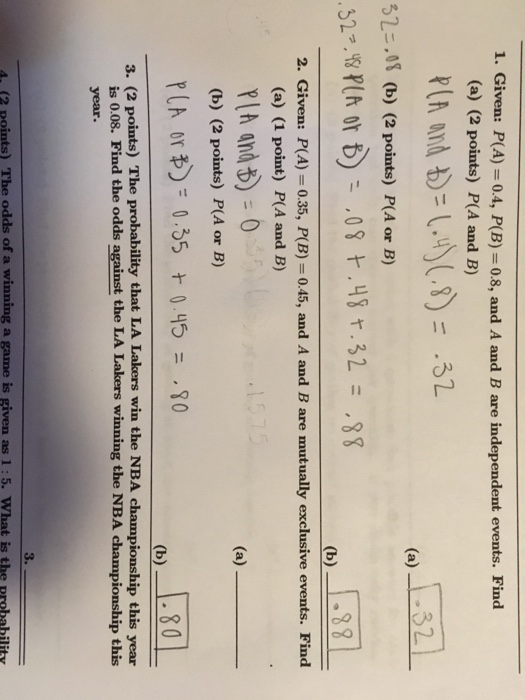 1. Given: P(A) = 0.4, P(B) = 0.8, and A and B are independent events. Find
(a) (2 points) P(A and B)
P(A and B) = (.4)(.8) = .32
(a) .32
32 = .08 (b) (2 points) P(A or B)
.32 = .48 P(A or B) = .08 + .48 + .32 = .88
(b) .88
2. Given: P(A) = 0.35, P(B) = 0.45, and A and B are mutually exclusive events. Find
(a) (1 point) P(A and B)
P(A and B) = 0
.1575
(a)
(b) (2 points) P(A or B)
P(A or B) = 0.35 + 0.45 = .80
(b) .80
3. (2 points) The probability that LA Lakers win the NBA championship this year
is 0.08. Find the odds against the LA Lakers winning the NBA championship this
year.
3.
4. (2 points) The odds of a winning a game is given as 1 : 5. What is the probability